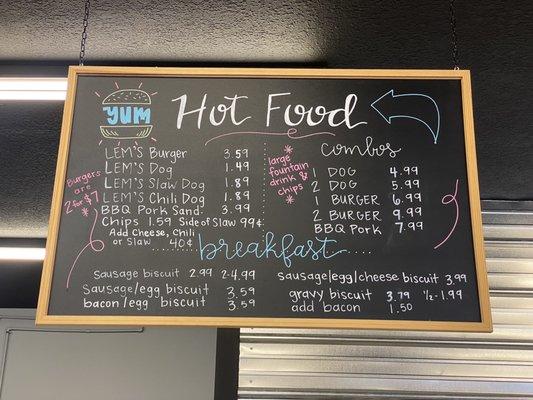 YUM
Hot Food
Burgers
are
2 for $7
LEM'S Burger 3.59
LEM'S Dog 1.49
LEM'S Slaw Dog 1.89
LEM'S Chili Dog 1.89
BBQ Pork Sand. 3.99
Chips 1.59 Side of Slaw 99¢
Add Cheese, Chili
or Slaw 40¢
large
fountain
drink &
chips
combos
1 DOG 4.99
2 DOG 5.99
1 BURGER 6.99
2 BURGER 9.99
BBQ PORK 7.99
breakfast
Sausage biscuit 2.99 2-4.99
Sausage/egg biscuit 3.59
bacon/egg biscuit 3.59
sausage/egg/cheese biscuit 3.99
gravy biscuit 3.79 1/2-1.99
add bacon 1.50